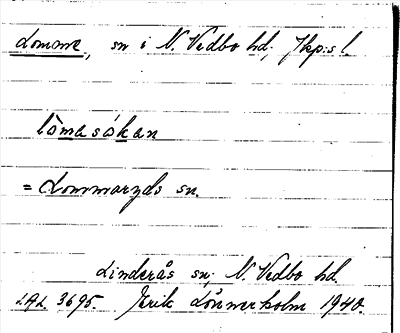 Lomme, sn i N. Vedbo hd, Jkp:s l.
lomasókan
= Lommaryds sn.
Linderås sn, N. Vedbo hd.
LAL 3695. Erik Lönnerholm 1940.